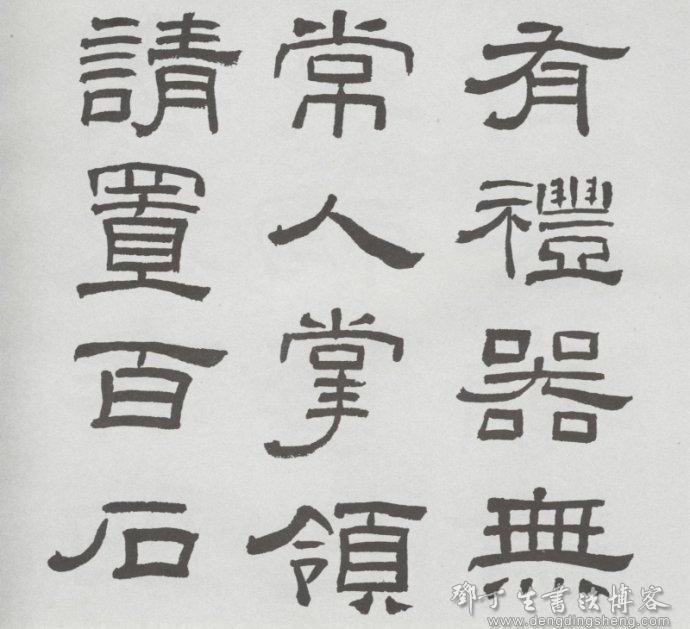 有禮器無
常人掌領
請置百石
鄧丁生書法博客
www.dengdingsheng.com